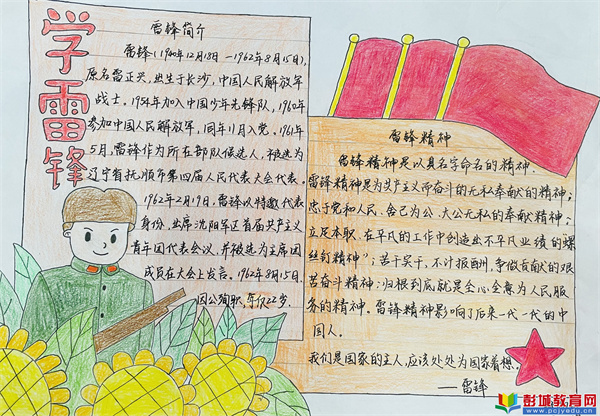 学雷锋
雷锋简介
雷锋(1940年12月18日—1962年8月15日),
原名雷正兴,出生于长沙,中国人民解放军
战士。1954年加入中国少年先锋队,1960年
参加中国人民解放军,同年11月入党。1961年
5月,雷锋作为所在部队候选人,被选为
辽宁省抚顺市第四届人民代表大会代表。
1962年2月19日,雷锋以特邀代表
身份,出席沈阳军区首届共产主义
青年团代表会议,并被选为主席团
成员在大会上发言。1962年8月15日,
因公殉职,年仅22岁。
雷锋精神
雷锋精神是以其名字命名的精神.
雷锋精神是为共产主义而奋斗的无私奉献的精神;
忠于党和人民、舍己为公、大公无私的奉献精神;
立足本职、在平凡的工作中创造出不平凡业绩的“螺
丝钉精神”;苦干实干,不计报酬,争做贡献的艰
苦奋斗精神;归根到底就是全心全意为人民服
务的精神。雷锋精神影响了后来一代一代的中
国人。
我们是国家的主人,应该处处为国家着想。
——雷锋
彭城教育网
www.pcjyedu.cn